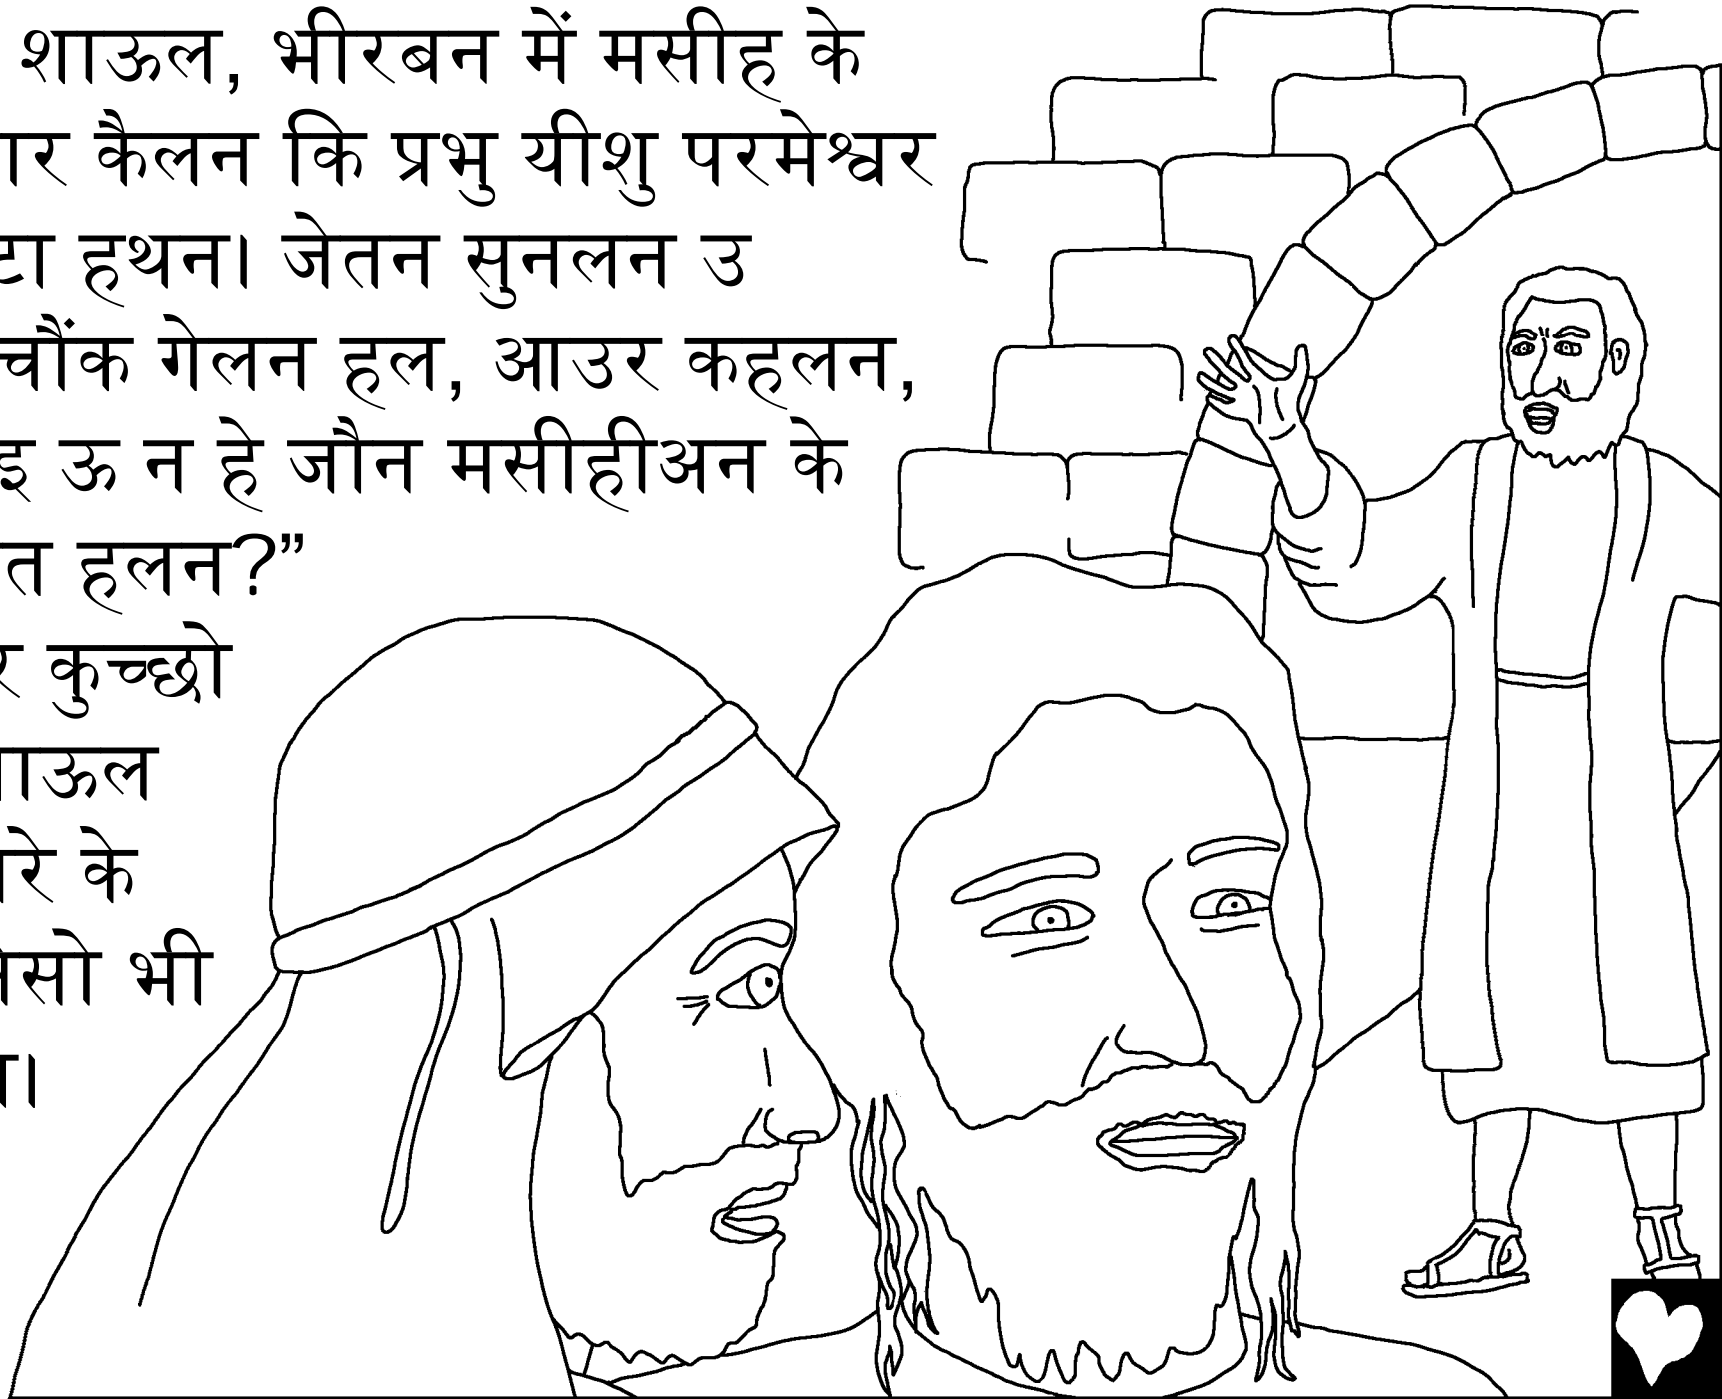 शाऊल, भीरबन में मसीह के
कैलन कि प्रभु यीशु परमेश्वर
हथन। जेतन सुनलन उ
चौंक गेलन हल, आउर कहलन,
इ ऊ न हे जौन मसीहीअन के
हलन?”
कुच्छो
के
भी